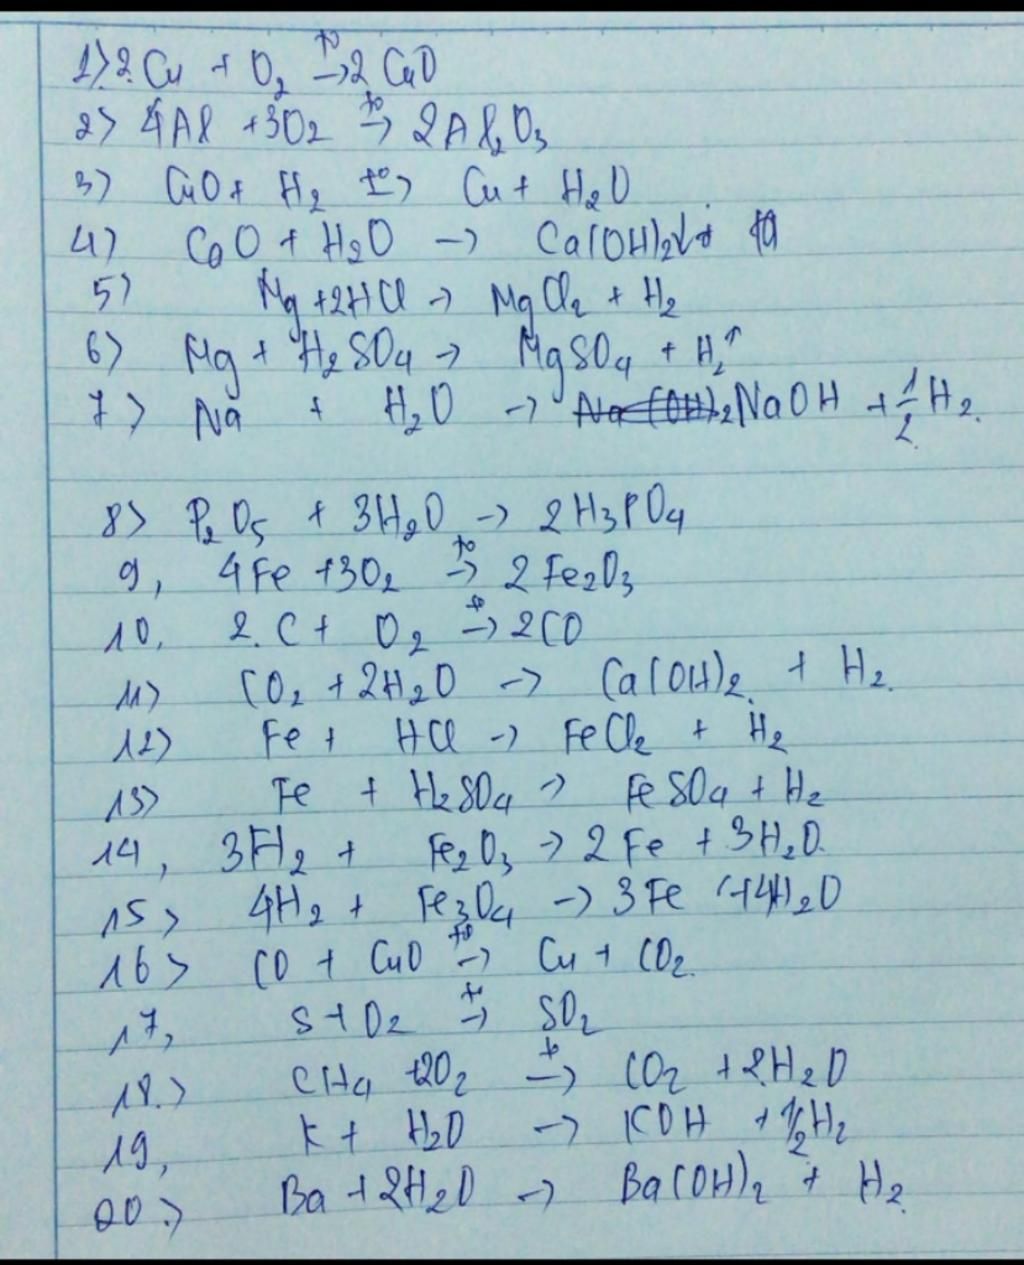 1) 2Cu + O₂ →(t°) 2CuO
2) 4Al + 3O₂ →(t°) 2Al₂O₃
3) CuO + H₂ →(t°) Cu + H₂O
4) CaO + H₂O → Ca(OH)₂↓
5) Mg + 2HCl → MgCl₂ + H₂
6) Mg + H₂SO₄ → MgSO₄ + H₂↑
7) Na + H₂O → NaOH + 1/2 H₂.
8) P₂O₅ + 3H₂O → 2H₃PO₄
9, 4Fe + 3O₂ →(t°) 2Fe₂O₃
10, 2.C + O₂ →(t°) 2CO
11) CO₂ + 2H₂O → Ca(OH)₂ + H₂.
12) Fe + HCl → FeCl₂ + H₂
13) Fe + H₂SO₄ → FeSO₄ + H₂
14, 3H₂ + Fe₂O₃ → 2Fe + 3H₂O.
15) 4H₂ + Fe₃O₄ → 3Fe + 4H₂O
16) CO + CuO →(t°) Cu + CO₂.
17, S + O₂ →(t°) SO₂
18.) CH₄ + 2O₂ →(t°) CO₂ + 2H₂O
19, K + H₂O → KOH + 1/2 H₂
20.) Ba + 2H₂O → Ba(OH)₂ + H₂.